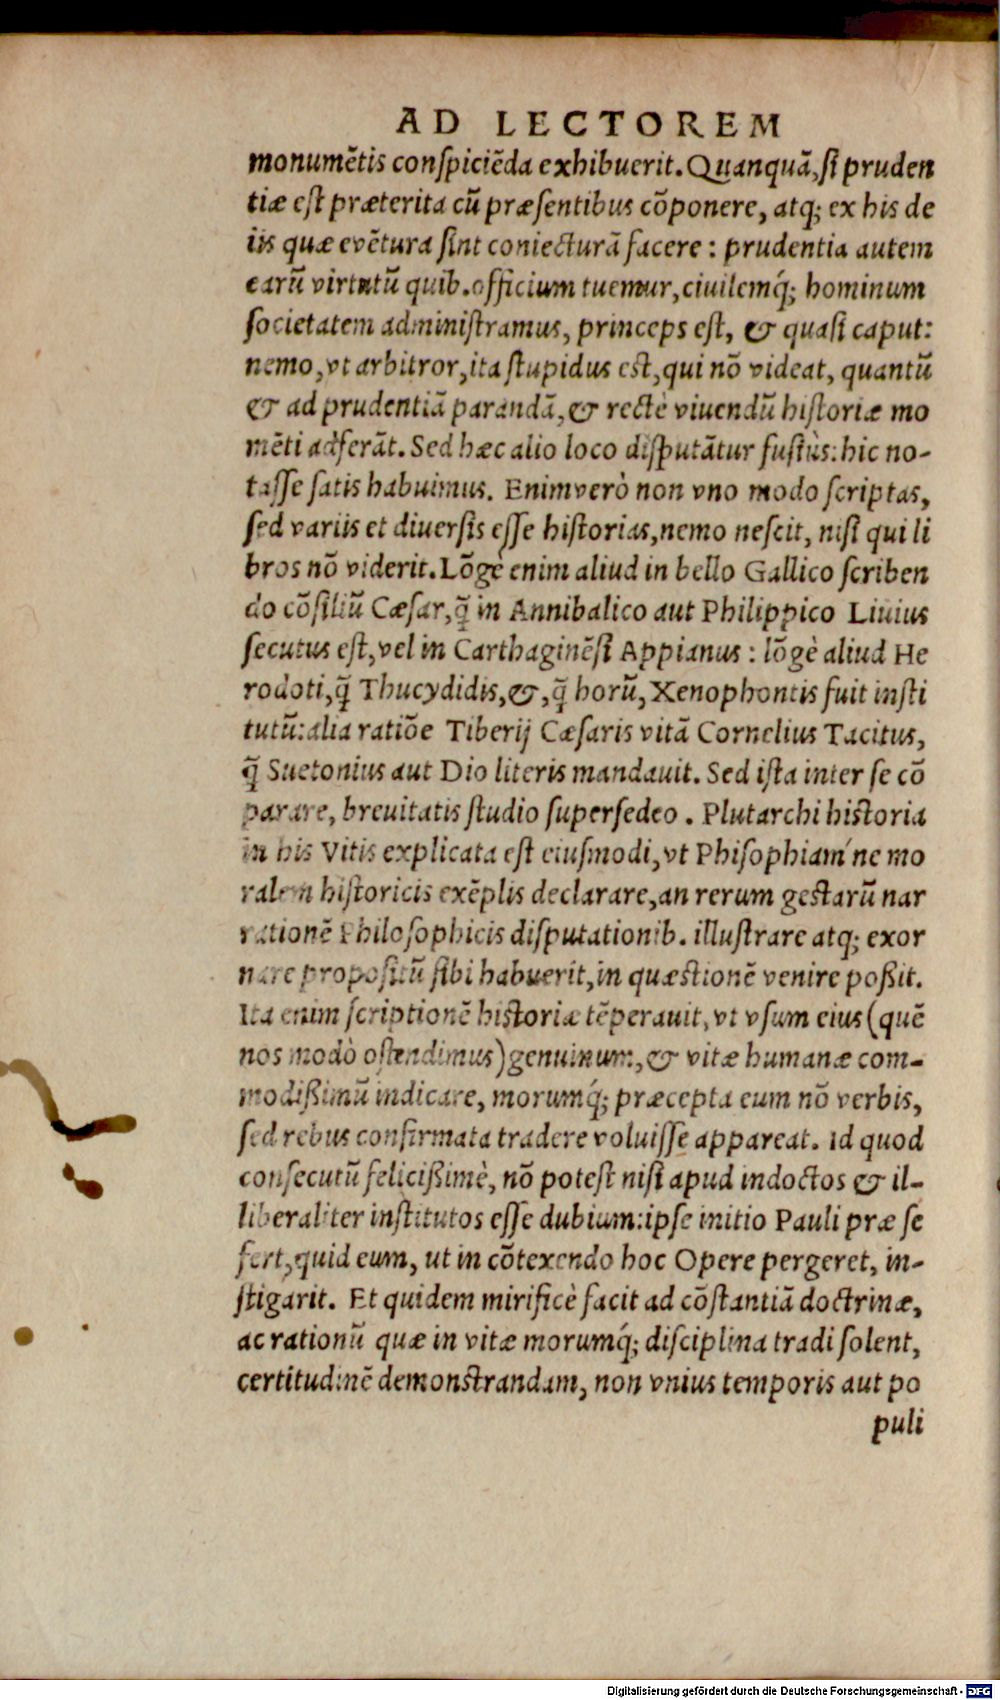 AD LECTOREM
monumētis conſpiciēda exhibuerit. Quanquā, ſi pruden
tiæ eſt præterita cū præſentibus cōponere, atq; ex his de
iis quæ evētura ſint coniecturā facere: prudentia autem
earū virtutū quib. officium tuemur, ciuilemq́; hominum
ſocietatem adminiſtramus, princeps eſt, & quaſi caput:
nemo, vt arbitror, ita ſtupidus eſt, qui nō videat, quantū
& ad prudentiā parandā, & rectè viuendū hiſtoriæ mo
mēti adferāt. Sed hæc alio loco diſputātur fuſiùs: hic no-
taſſe ſatis habuimus. Enimverò non vno modo ſcriptas,
ſed variis et diuerſis eſſe hiſtorias, nemo neſcit, niſi qui li
bros nō viderit. Lōgè enim aliud in bello Gallico ſcriben
do cōſiliū Cæſar, q̄ in Annibalico aut Philippico Liuius
ſecutus eſt, vel in Carthaginēſi Appianus: lōgè aliud He
rodoti, q̄ Thucydidis, &, q̄ horū, Xenophontis fuit inſti
tutū: alia ratiōe Tiberij Cæſaris vitā Cornelius Tacitus,
q̄ Suetonius aut Dio literis mandauit. Sed iſta inter ſe cō
parare, breuitatis ſtudio ſuperſedeo. Plutarchi hiſtoria
in his Vitis explicata eſt eiuſmodi, vt Phiſophiam´ne mo
ralem hiſtoricis exēplis declarare, an rerum geſtarū nar
rationē Philoſophicis diſputationib. illuſtrare atq; exor
nare propoſitū ſibi habuerit, in quæſtionē venire poßit.
Ita enim ſcriptionē hiſtoriæ tēperauit, vt vſum eius (quē
nos modò oſtendimus) genuinum, & vitæ humanæ com-
modißimū indicare, morumq́; præcepta eum nō verbis,
ſed rebus confirmata tradere voluiſſe appareat. Id quod
conſecutū feliciſsimè, nō poteſt niſi apud indoctos & il-
liberaliter inſtitutos eſſe dubium: ipſe initio Pauli præ ſe
fert, quid eum, ut in cōtexendo hoc Opere pergeret, in-
ſtigarit. Et quidem mirificè facit ad cōſtantiā doctrinæ,
ac rationū quæ in vitæ morumq́; diſciplina tradi ſolent,
certitudinē demonſtrandam, non vnius temporis aut po
puli
Digitalisierung gefördert durch die Deutsche Forschungsgemeinschaft - DFG